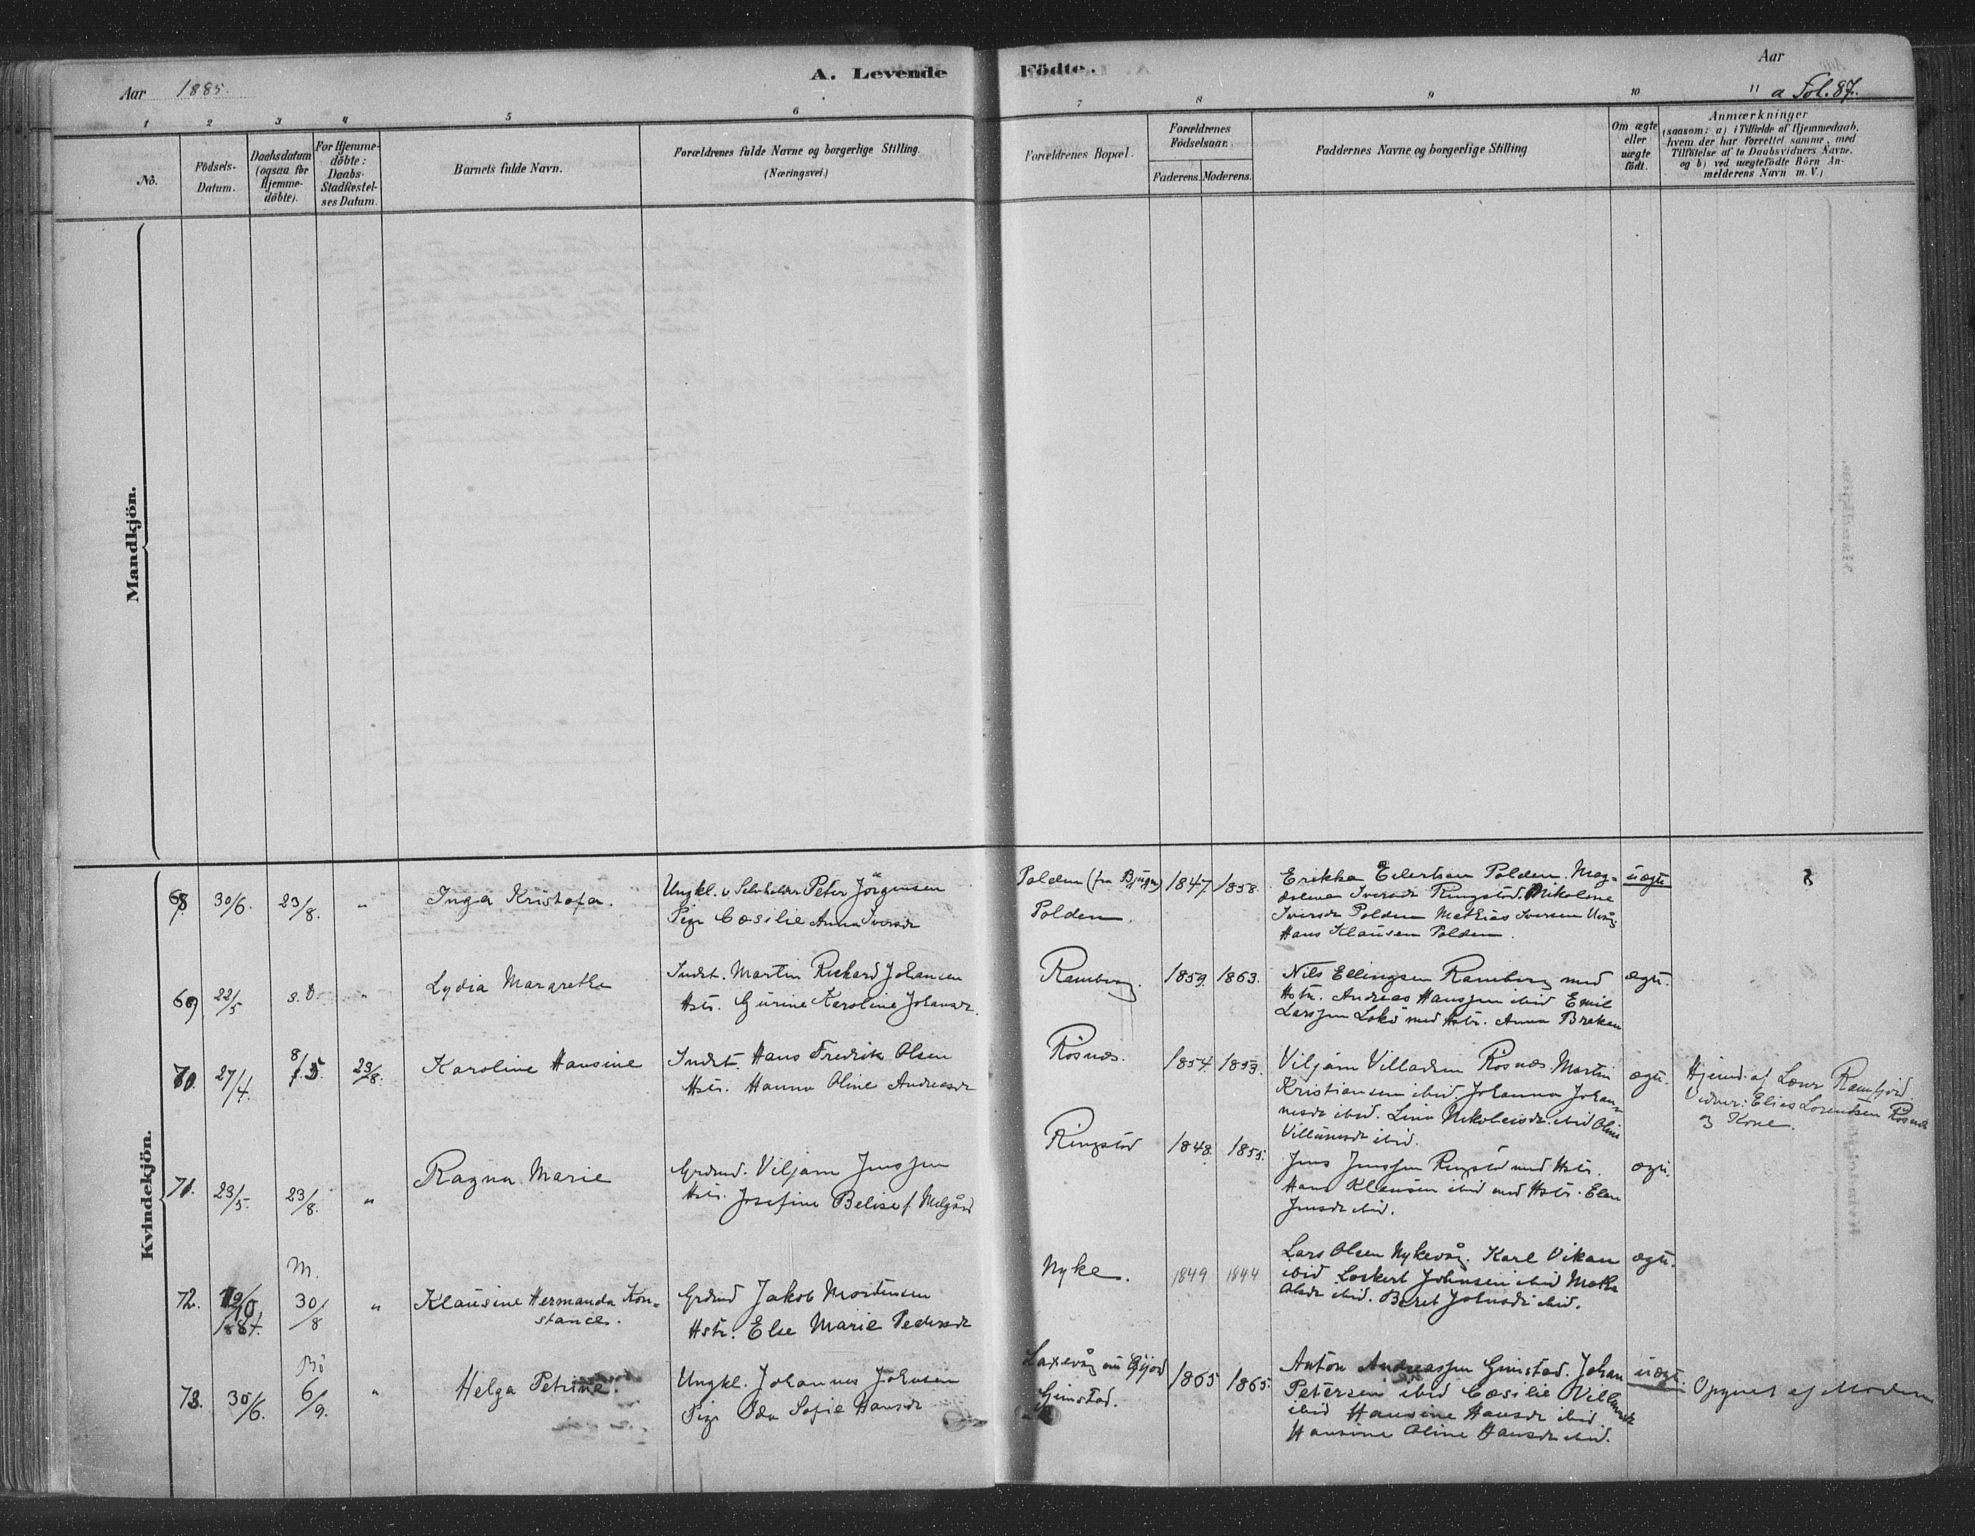 A. Levende Födte.
Aar 1885.
Aar
a Fol. 87.
1 2 3 4 5 6 7 8 9 10 11
No.
Födsels-Datum.
Daabsdatum (ogsaa for Hjemme-döbte).
For Hjemme-döbte: Daabs-Stadfæstel-ses Datum.
Barnets fulde Navn.
Forældrenes fulde Navne og borgerlige Stilling. (Næringsvei.)
Forældrenes Bopæl.
Forældrenes Födselsaar.
Faderens. Moderens.
Faddernes Navne og borgerlige Stilling
Om ægte eller uægte födt.
Anmærkninger
(saasom: a) i Tilfælde af Hjemmedaab,
hvem der har forrettet samme, med
Tilföielse af to Daabsvidners Navne,
og b) ved uægtefödte Börn An-
melderens Navn m. V.)
Mandkjön.
Kvindekjön.
68 30/6. 23/8. " Inga Kristofa. Ungkl. Selvholder Peter Jörgensen
Pige Cæsilie Anna Iversdr
Polden (fra Bjugn) Polden. 1847 1858. Erikka Eilertsen Polden. Mag-
dalena Iversdr Ringstad. Nikoline
Iversdr Polden Mathias Iversen
Hans Klausen Polden. uægte
69) 22/5 s.D. " Lydia Margrethe Indst. Martin Rickard Johansen
Hstr. Gurine Karoline Johansdr.
Ramberg. 1859. 1863. Nils Ellingsen Ramberg med
Hstr. Andreas Hanssen ibid Emil
Larssen med Hstr. Anna Breken ægte.
70. 27/4. 8/5. 23/8. Karoline Hansine Indst. Hans Fredrik Olsen
Hstr. Hanna Oline Andreasdr
Rosnæs. 1854 1853. Viljam Villadsen Rosnæs. Martin
Kristiansen ibid. Johanna Johan-
nesdr ibid. Lina Nikolaisdr. ibid Oline
ibid. ægte. Hjemd. af Lærer Ramfjord.
Vidner: Elias Lorentsen Rosnæs
og Kone.
71. 23/5. 23/8. " Ragna Marie Grdmd. Viljam Jenssen
Hstr. Josefine Belise f. Melgård
Ringstad 1848. 1855. Jens Jenssen Ringstad med Hstr.
Hans Klausen ibid med Hstr. Elen
Jensdr ibid. ægte.
72. 19/10 1884. M. 30/8 " Klausine Hermanda Kon-
stance. Grdmd Jakob Mortensen
Hstr. Else Marie Pedersdr
Nyke. 1849 1844 Lars Olsen Nykevåg. Karl Vikan
ibid Lockert Johnsen ibid Metha
Olsdr ibid. Beret Johnsdr ibid. ægte.
73. 30/6. Bö 6/9. " Helga Petrine. Ungkl. Johannes Johnsen
Pige Ida Sofie Hansdr
Gimstad. 1865 1865. Anton Andreassen Gimstad. Johan
Petersen ibid Cæsilie
ibid Hansine Hansdr ibid
Hansine Oline Hansdr ibid. uægte. Opgivet af Moderen